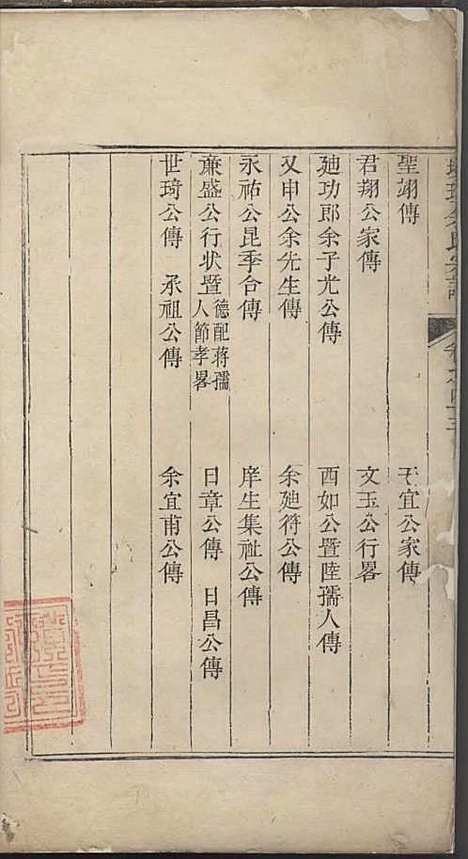 聖翊傳 于宜公家傳
君翔公家傳 文玉公行畧
廸功郎余子光公傳 西如公暨陸孺人傳
又申公余先生傳 余廸符公傳
永祐公昆季合傳 庠生集祉公傳
廉盛公行状暨德配蔣孺人節孝畧 日章公傳 日昌公傳
世琦公傳 承祖公傳 余宜甫公傳